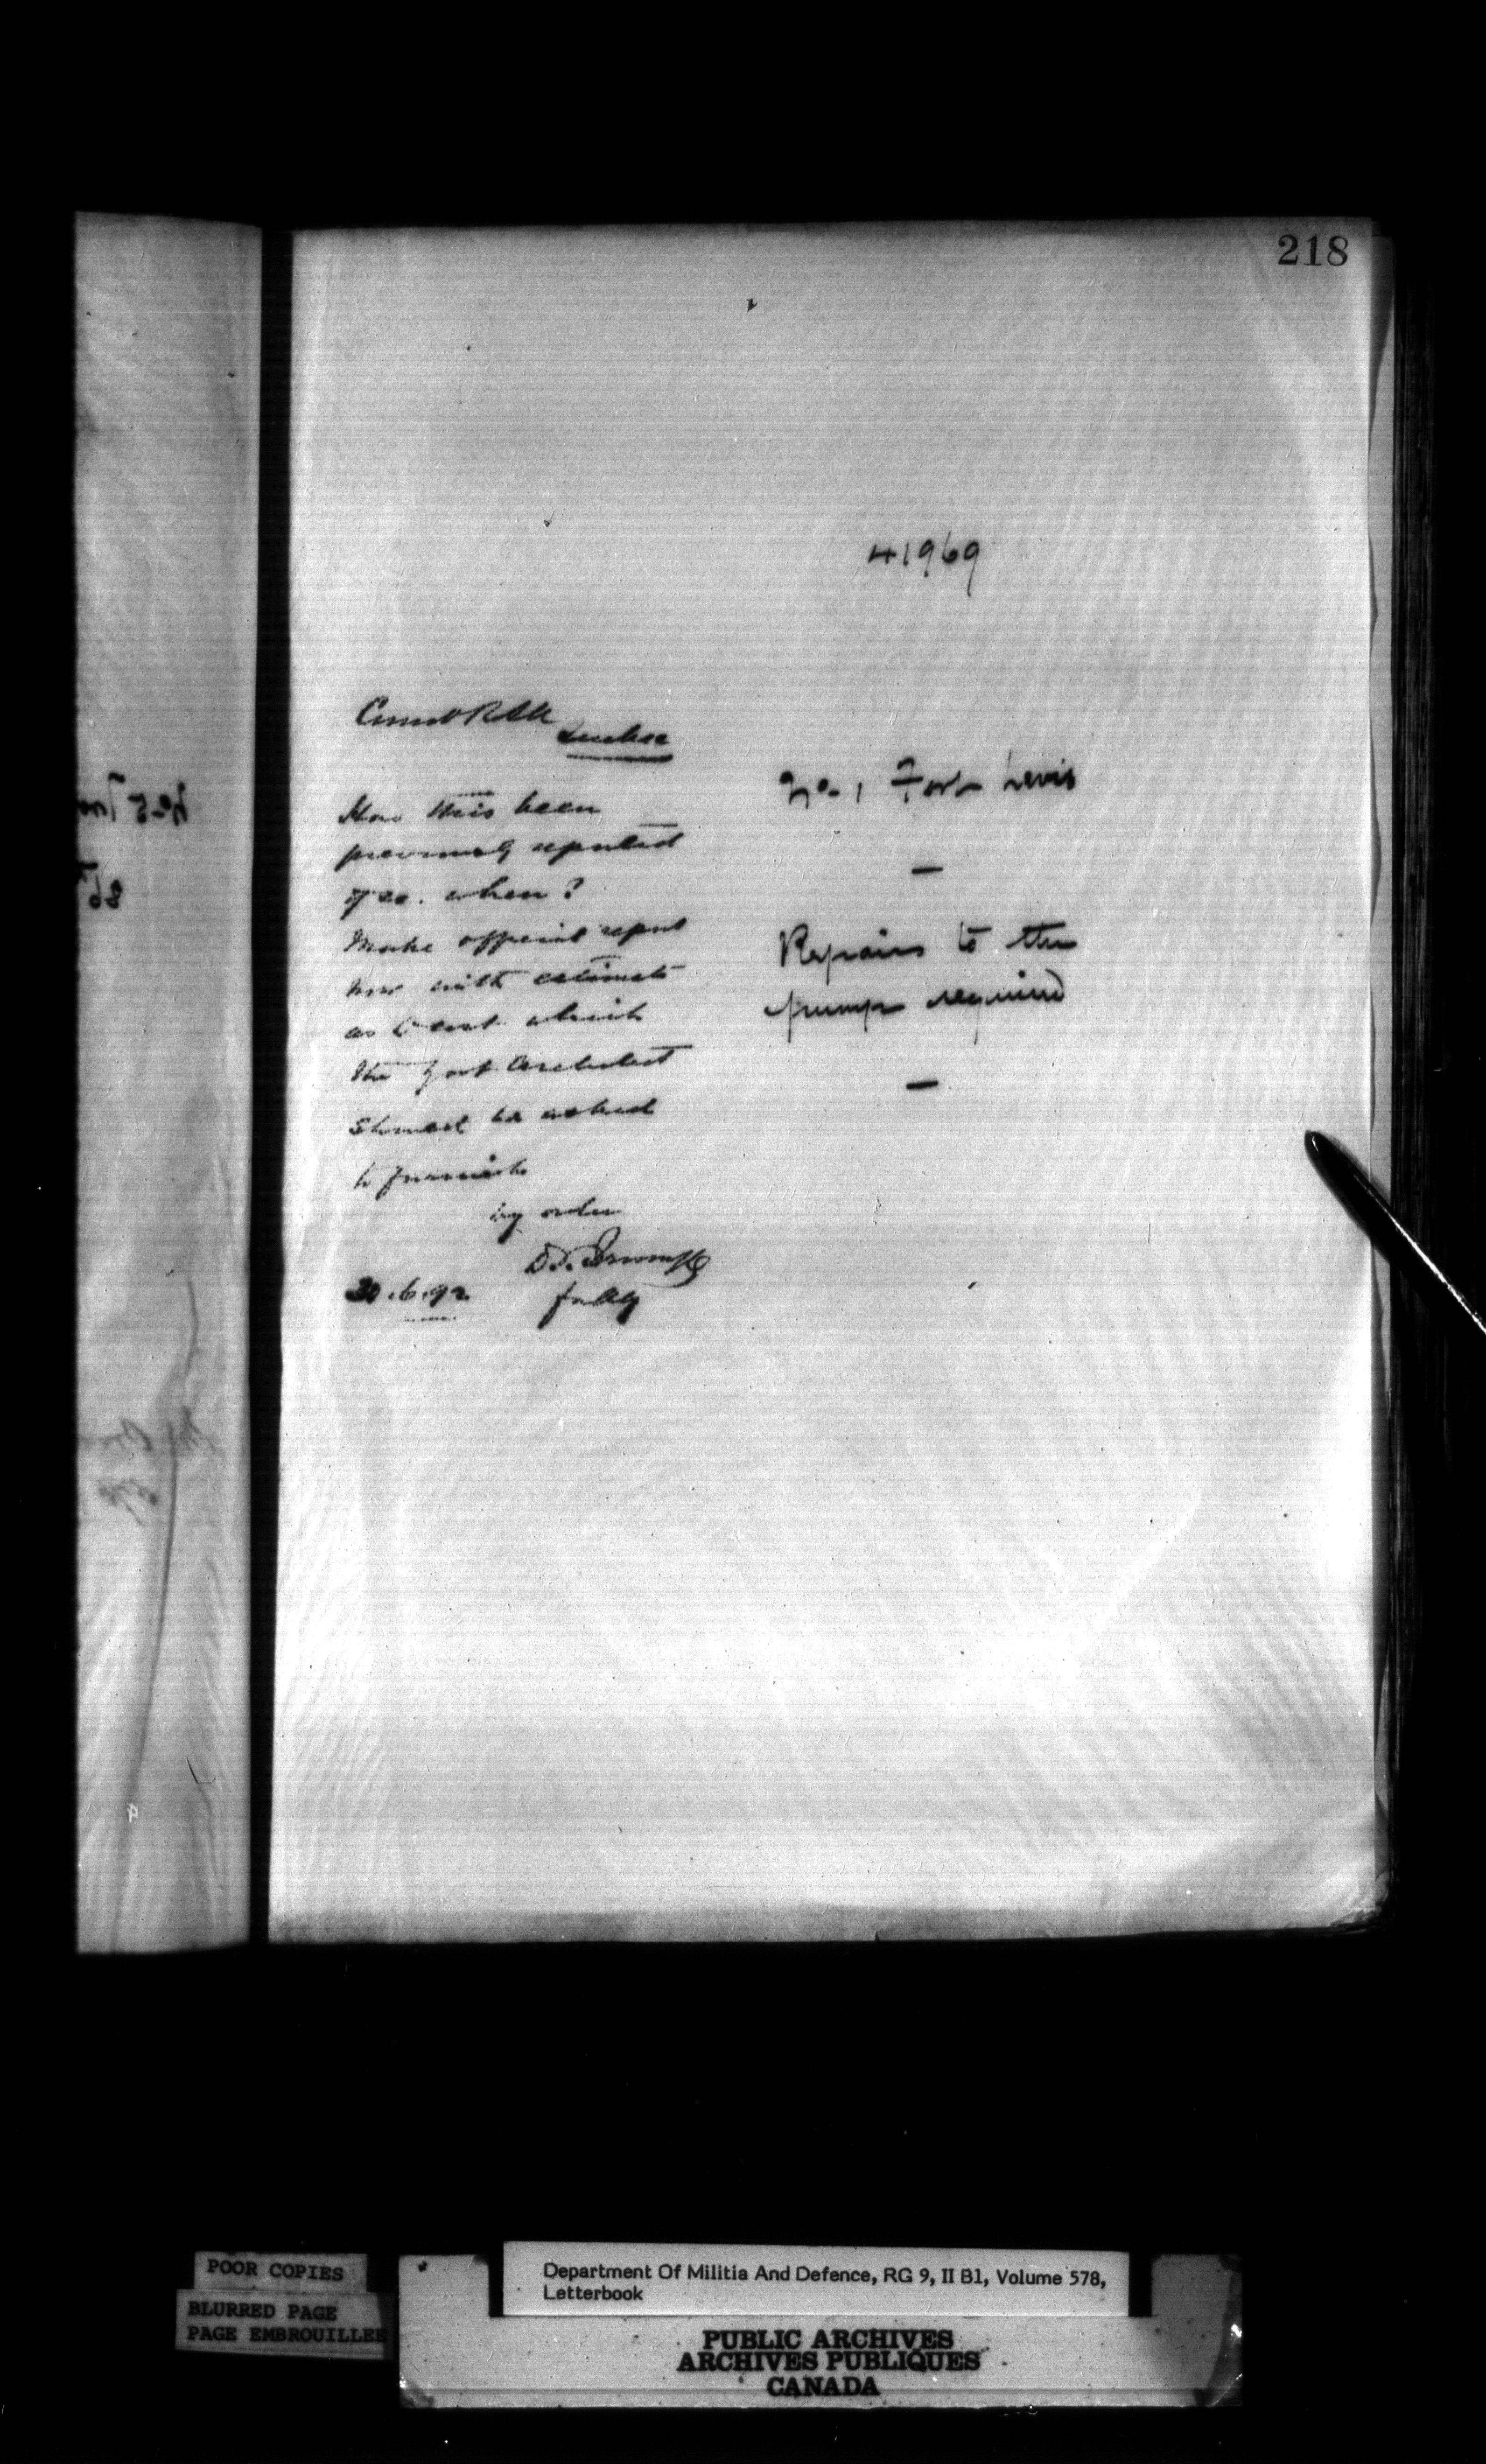 218
41969
Quebec
Has this been
previously reported
if so. when?
Make official report
now with estimate
as to cost which
the Govt Architect
should be asked
to furnish
by order
30.6.92
No. 1 Fort Levis
—
Repairs to the
pump required
—
POOR COPIES
BLURRED PAGE
PAGE EMBROUILLEE
Department Of Militia And Defence, RG 9, II B1, Volume 578,
Letterbook
PUBLIC ARCHIVES
ARCHIVES PUBLIQUES
CANADA